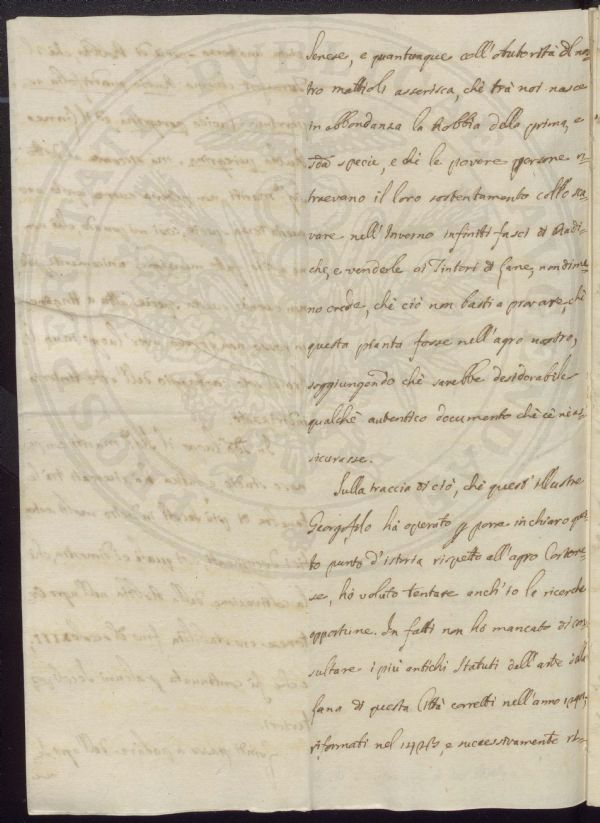 Senese, e quantunque coll'Autorità del no-
tro Mattioli asserisca, chè trà noi nasce
in abbondanza la Robbia della prima, e
2da specie, e chè le povere persone ri
traevano il loro sostentamento collo sca-
vare nell'Inverno infiniti fasci di Radi-
che, e venderle ai Tintori di Lane, nondime
no crede, chè ciò non basti a provare, chè
questa pianta fosse nell'agro nostro,
soggiungendo chè sarebbe desiderabile
qualchè autentico documento chè cè ne as
sicurasse.
Sulla traccia di ciò, chè quest'illustre
Georgofilo hà operato p porre in chiaro que
to punto d'istoria rispetto all'agro Cortone-
se, hò voluto tentare anch'io le ricerche
opportune. In fatti non hò mancato di con
sultare i più antichi Statuti dell'arte della
Lana di questa Città corretti nell'anno
riformati nel e successivamente ri-